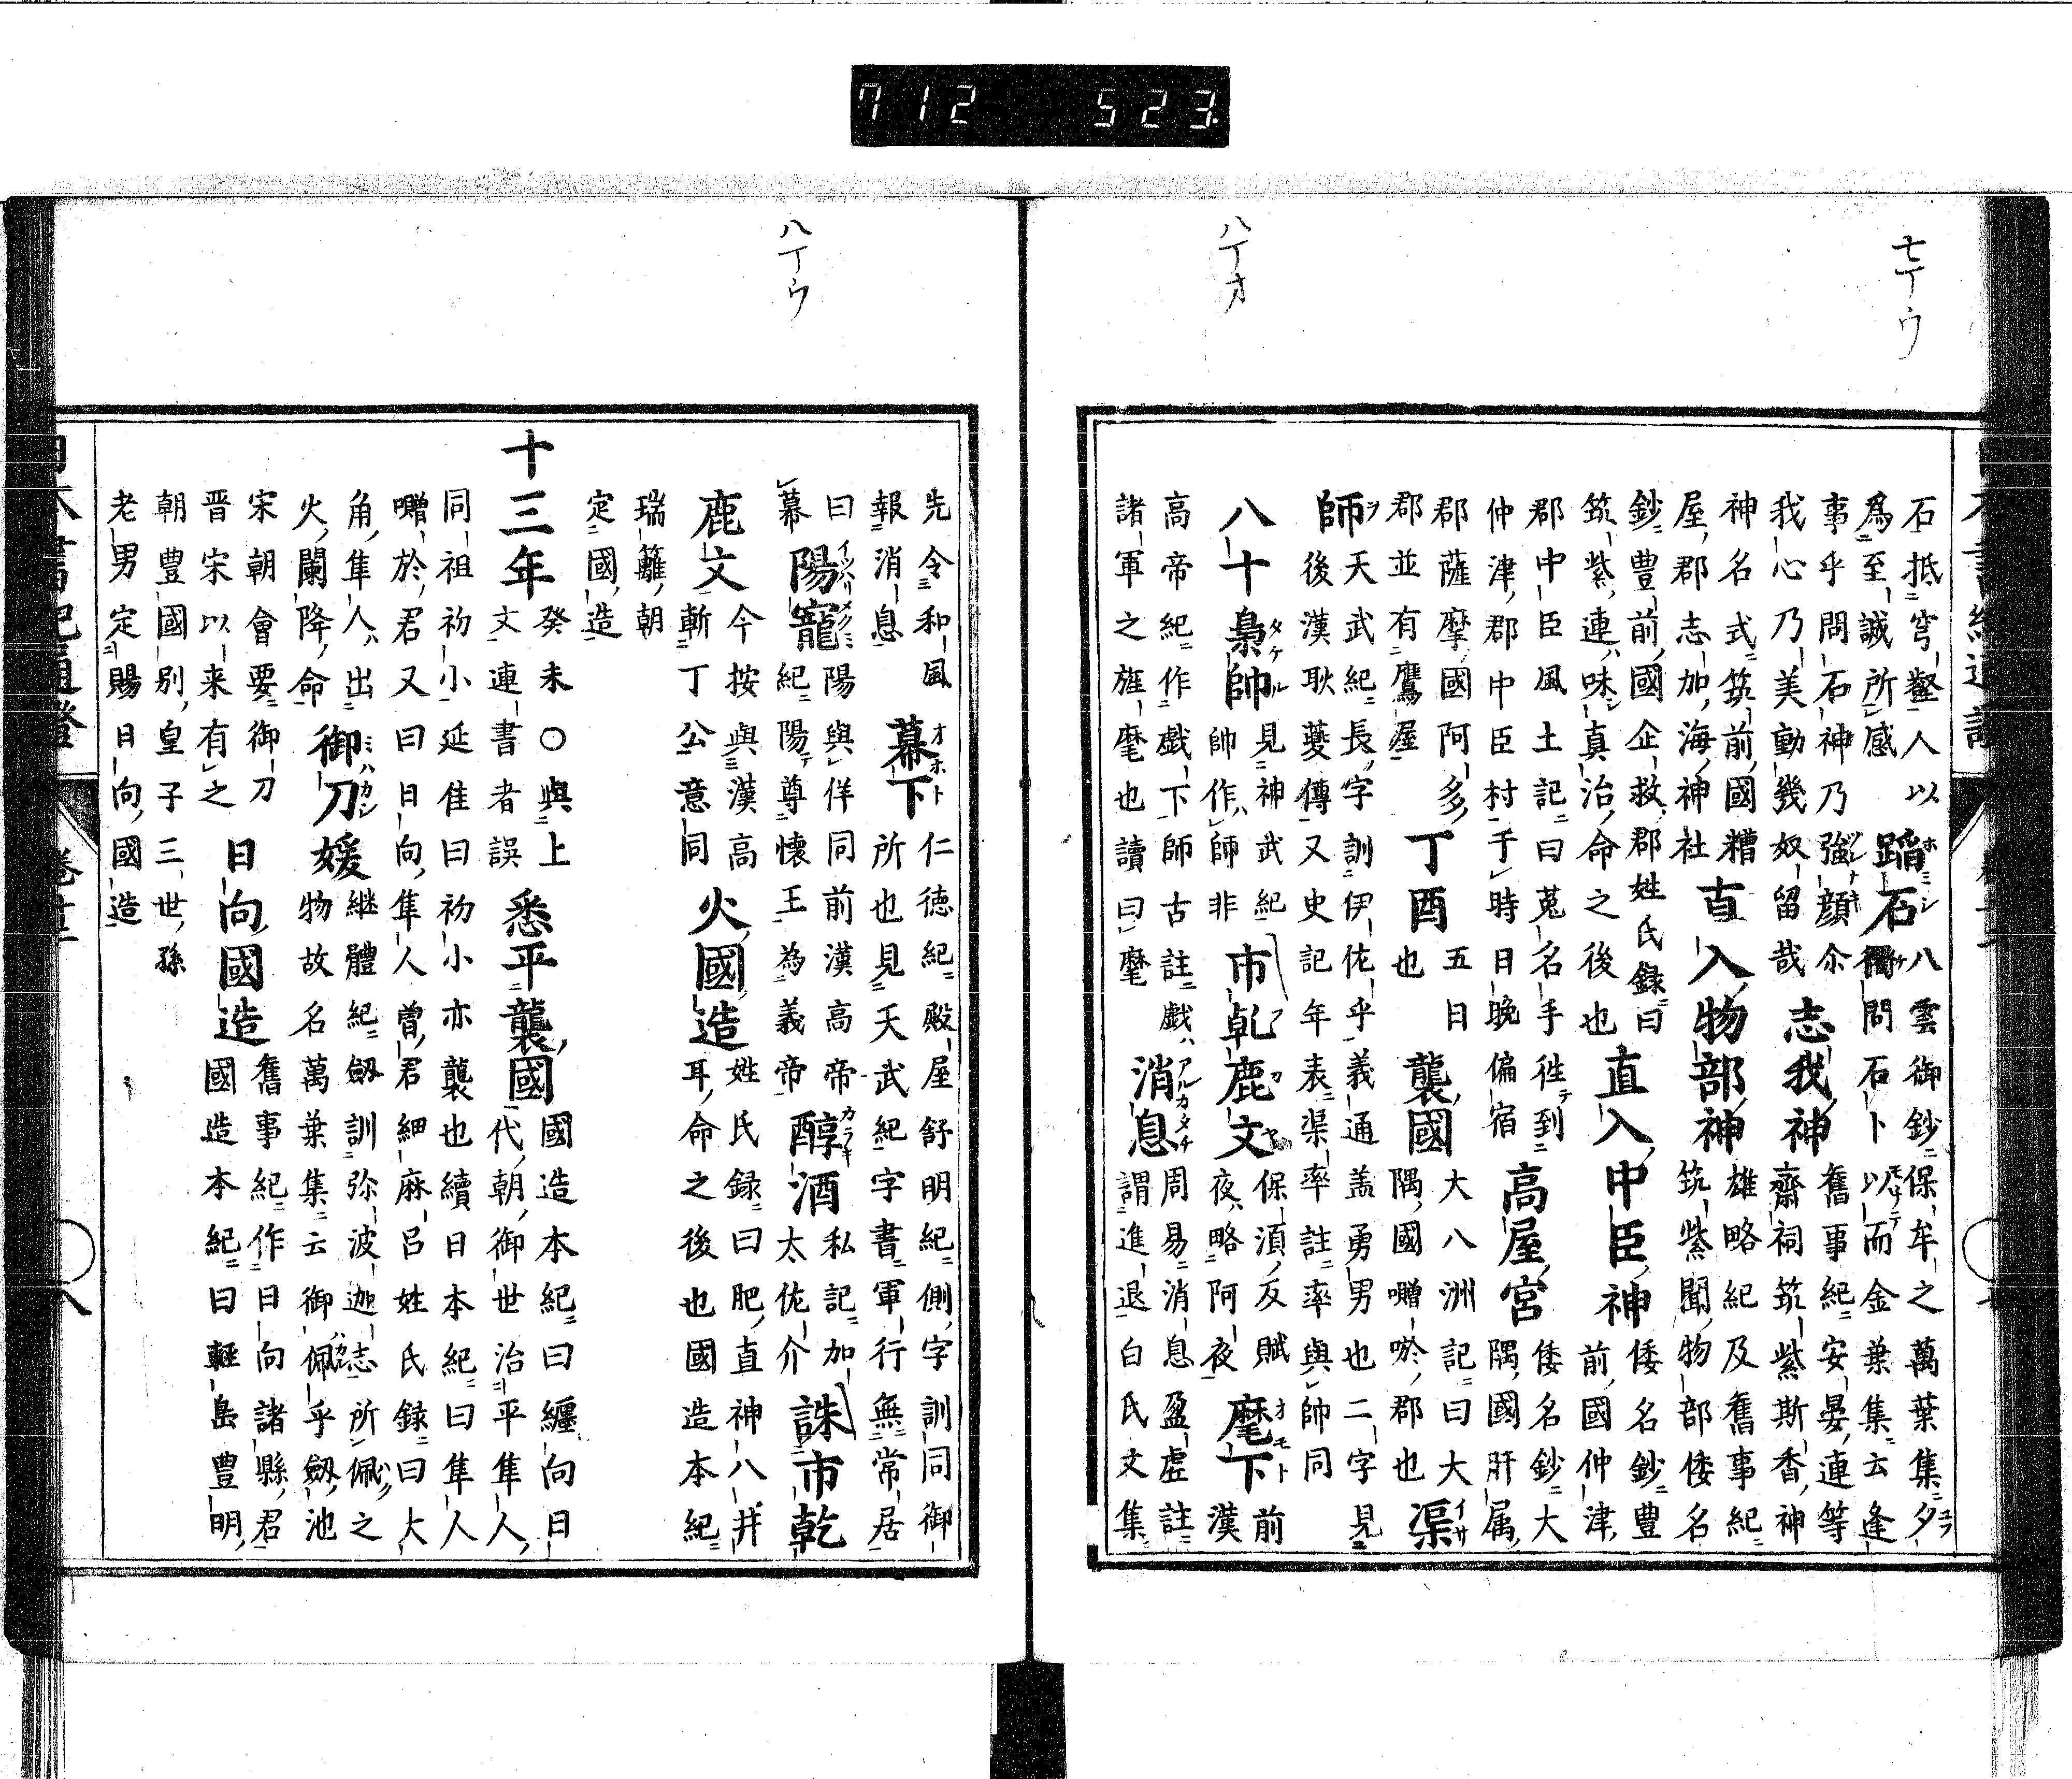 712 523.
七丁ウ
八丁オ
石抵穹壑人以
爲至誠所感
蹈石
八雲御鈔保牟之萬葉集夕
獨問石卜以而金葉集云逢
事乎問石神乃強顔尒
我心乃美動幾奴留哉
志我神
舊事紀安曇連等
齋祠筑紫斯香神
神名式筑前國糟
屋郡志加海神社
直入物部神
雄略紀及舊事紀
筑紫聞物部倭名
鈔豊前國企救郡姓氏録曰
筑紫連味真治命之後也
直入中臣神
倭名鈔豊
前國仲津
郡中臣風土記曰菟名手徃到
仲津郡中臣村于時日晚偏宿
高屋宮
倭名鈔大
隅國肝属
郡薩摩國阿多
郡並有鷹屋
丁酉
五日
也
襲國
大八洲記曰大
隅國囎唹郡也
渠
師
天武紀長字訓伊佐乎義通蓋勇男也二字見
後漢耿夔傳又史記年表渠率註率與帥同
八十梟帥
見神武紀
帥作師非
市乹鹿文
保湏反賦
夜略阿夜
麾下
前漢
高帝紀作戯下師古註戯
諸軍之旌麾也讀曰麾
消息
周易消息盈虚註
謂進退白氏文集
八丁ウ
先令和風
報消息
幕下
仁德紀殿屋舒明紀側字訓同御
所也見天武紀字書軍行無常居
曰
幕
陽寵
陽與佯同前漢高帝
紀陽尊懐王為義帝
醇酒
私記加
太佐介
誅市乾
鹿文
今按與漢高
斬丁公意同
火國造
姓氏録曰肥直神八井
耳命之後也國造本紀
瑞籬朝
定國造
十三年
癸未○與上
文連書者誤
悉平襲國
國造本紀曰纒向日
代朝御世治平隼人
同祖初小延隹曰初小亦襲也續日本紀曰隼人
囎於君又曰日向隼人曽君細麻呂姓氏録曰大
角隼人出
火闌降命
御刀媛
継體紀劔訓弥波迦志所佩之
物故名萬葉集云御佩乎劔池
宋朝會要御刀
晋宋以来有之
日向國造
舊事紀作日向諸縣君
國造本紀曰輕島豊明
朝豊國別皇子三世孫
老男定賜日向國造